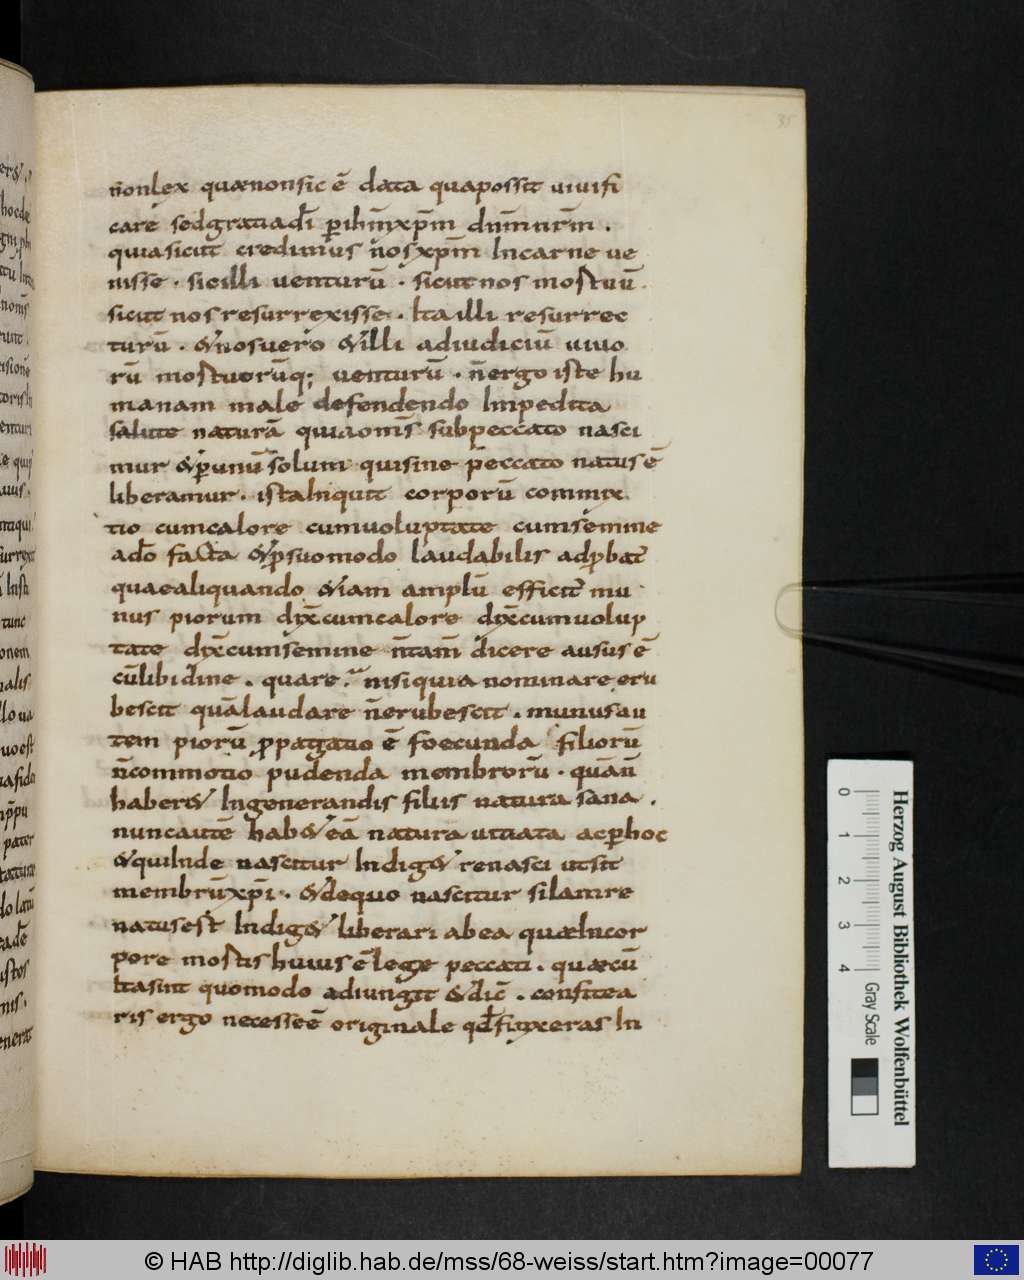 35
nonlex quænonsic ē data quapossit uiuifi
care sedgratiadi̅ p̲ihm̅xpm̅ dnm̅nrm̅ .
quiasicut credimus nosxpm̅ Incarne ue
nisse · sicilli uenturū · sicut nos mortuū ·
sicut nos resurrexisse · Ita illi resurrec
turū · &nosuero &illi adiudiciū uiuo
rū mortuorūq; uenturū · n̅ergo iste hu
manam male defendendo Impedita
salute naturā quiaomīs subpeccato nasci
mur &p̲unū solum quisine peccato natus ē
liberamur · istaInquit corporū commix
tio cumcalore cumuoluptate cumsemine
ado̅ facta &p̲suomodo laudabilis adp̲bat̅
quaealiquando &iam amplū efficit̅ mu
nus piorum dix̅cumcalore dix̅cumuolup
tate dix̅cumsemine n̅tam̅ dicere ausus ē
cu̅libidine . quare nisiquia nominare eru
bescit quālaudare n̅erubescit . munusau
tem piorū p̲pagatio ē foecunda filiorū
n̅commotio pudenda membrorū · quān̅
haber& Ingenerandis filiis natura sana .
nuncautē hab&eā natura uitiata acp̲hoc
&quiInde nascitur Indig& renasci utsit
membrūxpi̅ · &dequo nascitur silamre
natusest Indig& liberari abea quæIncor
pore mortis huius ē lege peccati . quæcū
Itasint quomodo adiungit &dic̅ . confitea
ris ergo necesseē originale qd̅fixeras In
Herzog August Bibliothek Wolfenbüttel
0 1 2 3 4 Gray Scale
© HAB http://diglib.hab.de/mss/68-weiss/start.htm?image=00077